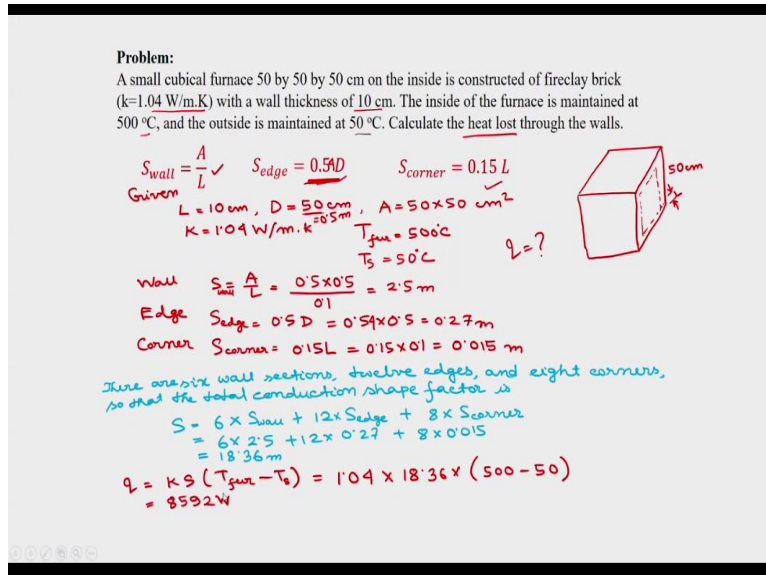 Problem:
A small cubical furnace 50 by 50 by 50 cm on the inside is constructed of fireclay brick
(k=1.04 W/m.K) with a wall thickness of 10 cm. The inside of the furnace is maintained at
500 °C, and the outside is maintained at 50 °C. Calculate the heat lost through the walls.
S_wall = A/L ✓ S_edge = 0.54D S_corner = 0.15 L ✓
50cm
Given
L = 10 cm, D = 50 cm = 0.5m, A = 50×50 cm²
K = 1.04 W/m.k T_fur = 500°C
T_s = 50°C q = ?
Wall S_wall = A/L = 0.5×0.5/0.1 = 2.5 m
Edge S_edge = 0.5 D = 0.54×0.5 = 0.27 m
Corner S_corner = 0.15L = 0.15×0.1 = 0.015 m
There are six wall sections, twelve edges, and eight corners,
so that the total conduction shape factor is
S = 6 × S_wall + 12× S_edge + 8× S_corner
= 6× 2.5 + 12× 0.27 + 8×0.015
= 18.36 m
q = KS (T_fur − T_s) = 1.04 × 18.36 × (500 − 50)
= 8592 W